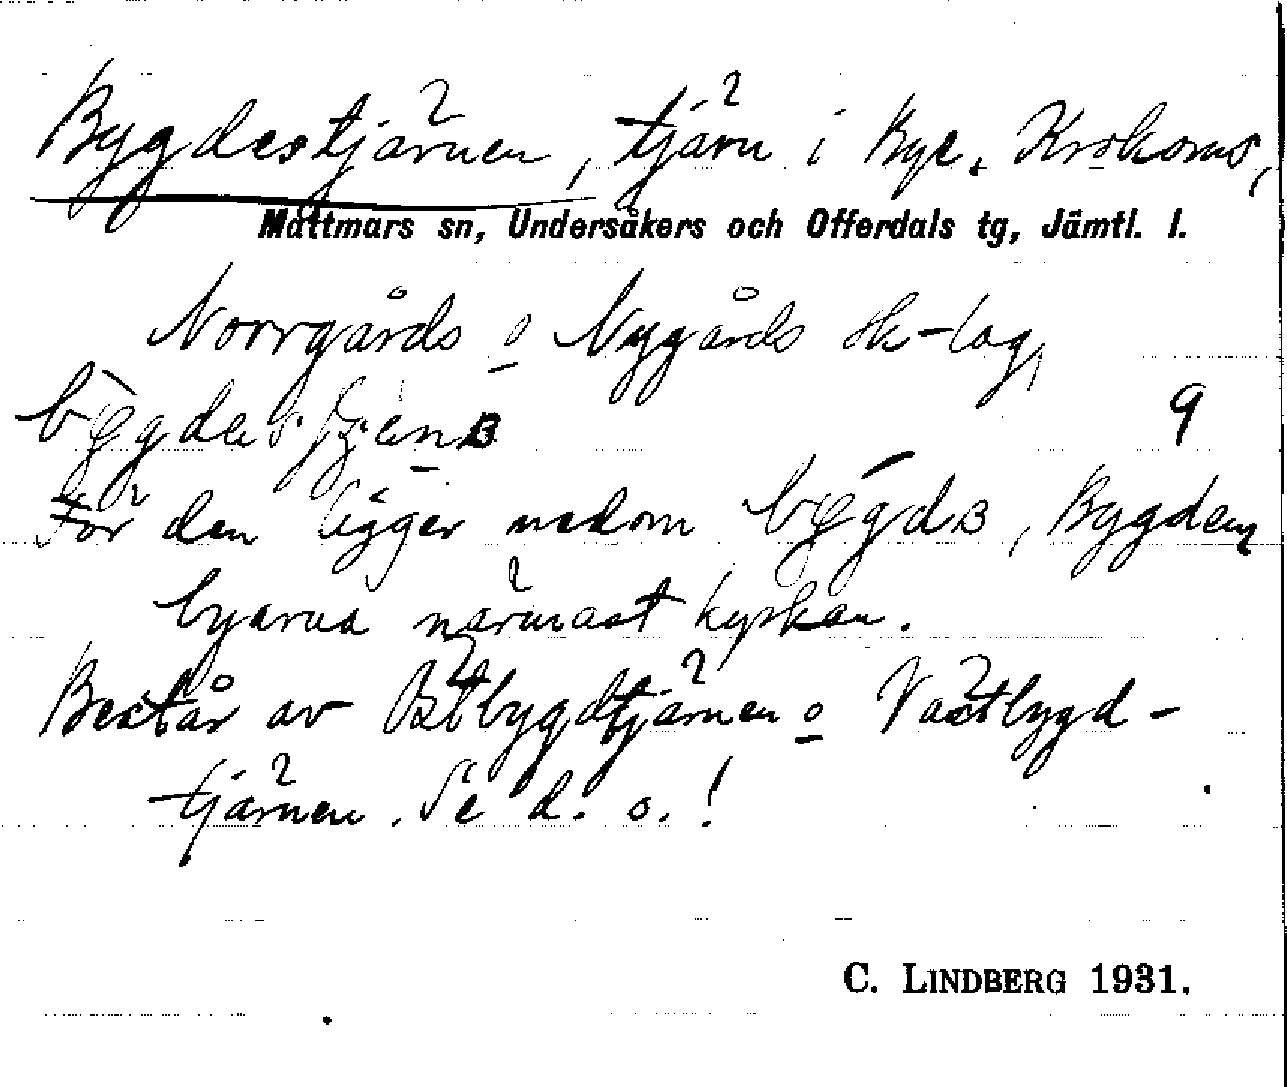 Bygdestjärnen, tjärn i Bye, Krokoms,
Mattmars sn, Undersåkers och Offerdals tg, Jämtl. l.
Norrgårds o Nygårds sk-lag,
9
För den ligger nedom bygdB, Bygden,
byarna närmast kyrkan.
Består av Östbygdtjärnen o Västbygd-
tjärnen. Se d. o.!
C. LINDBERG 1931.